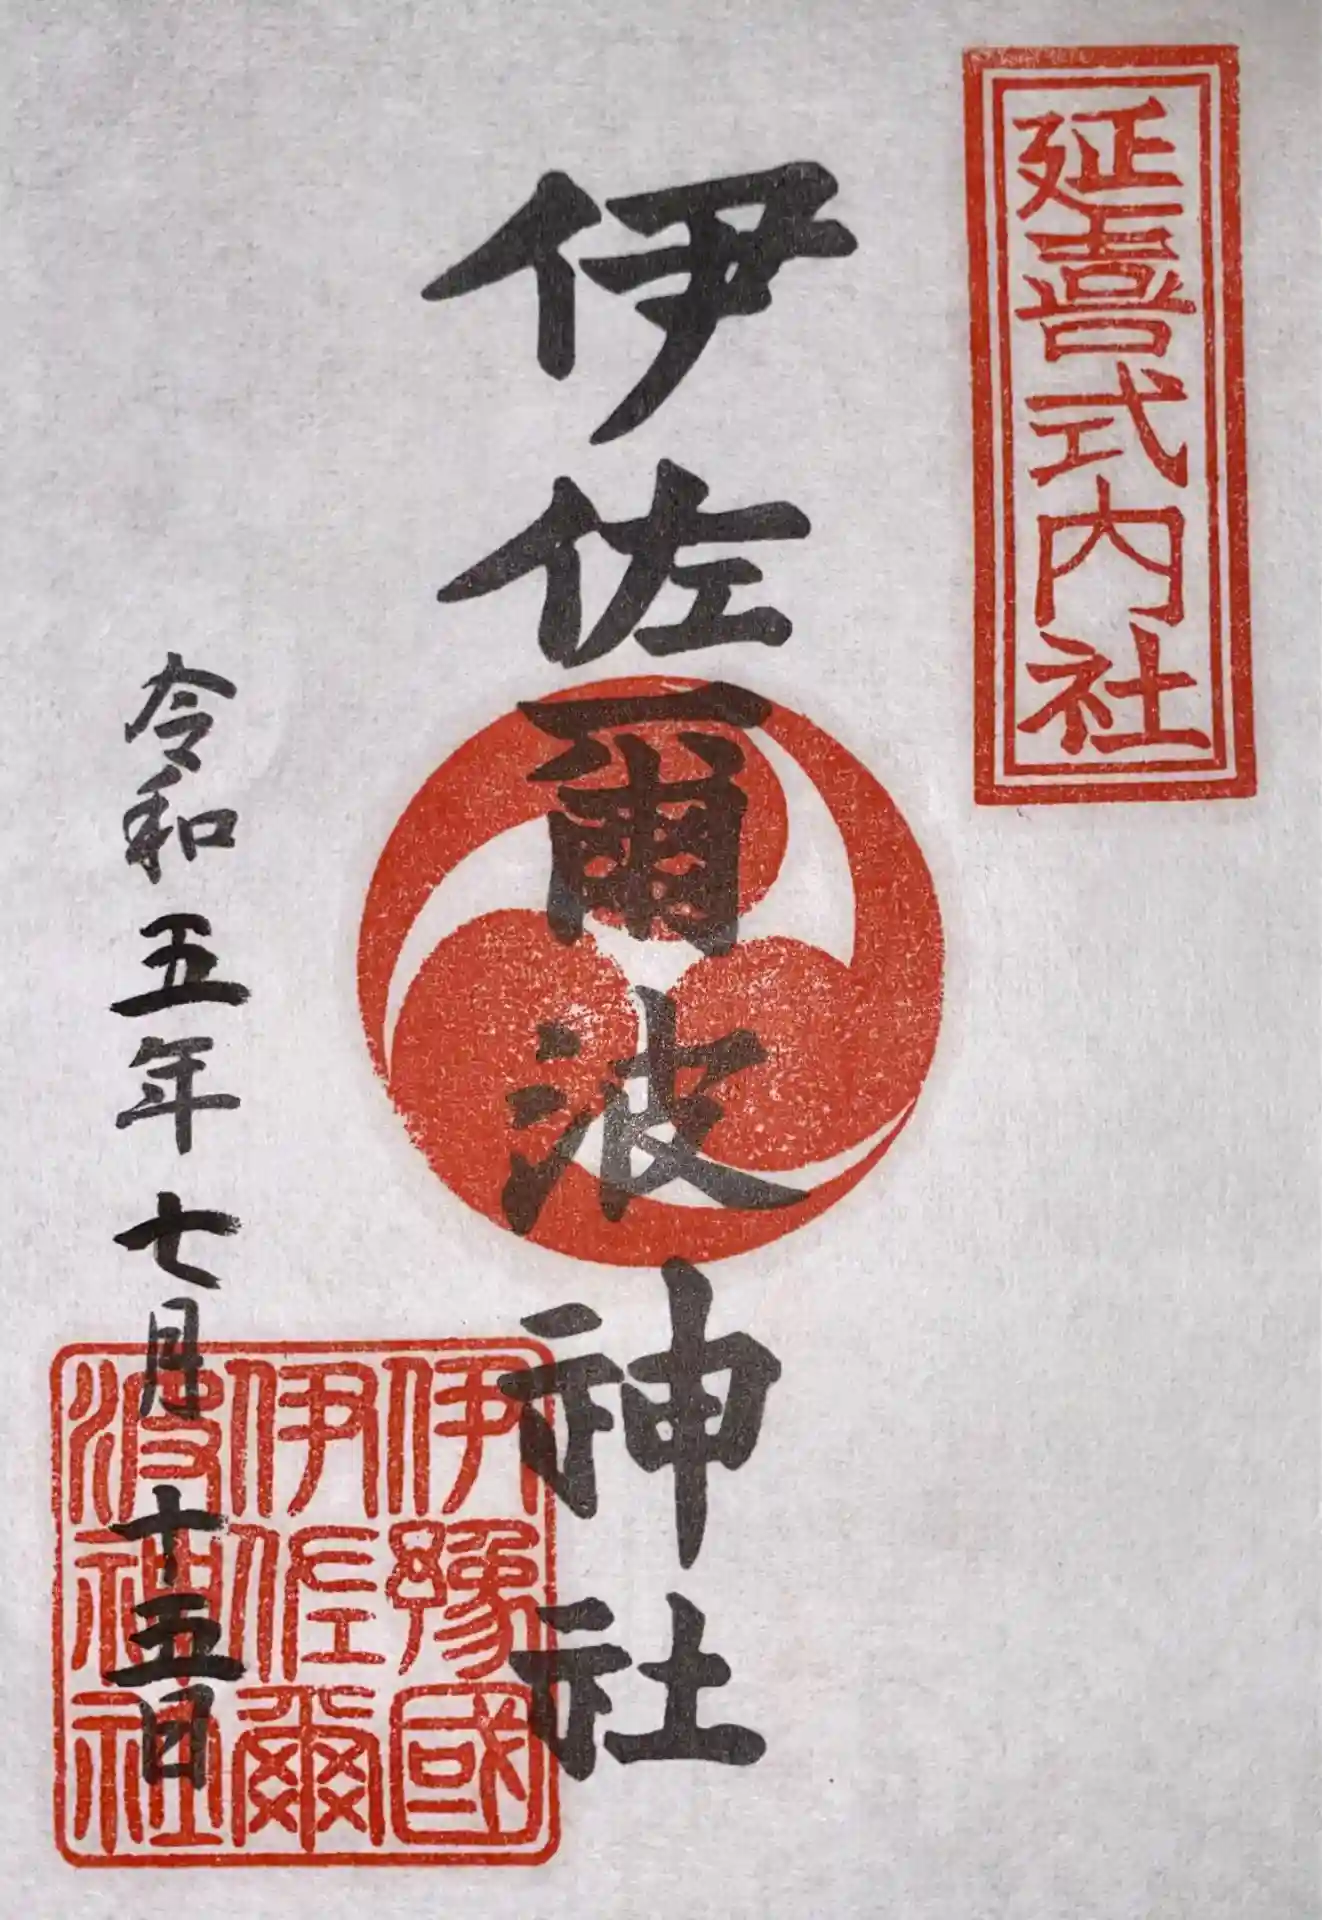 延喜式内社
伊佐爾波神社
令和五年七月十五日
伊豫國
伊佐爾
波神社